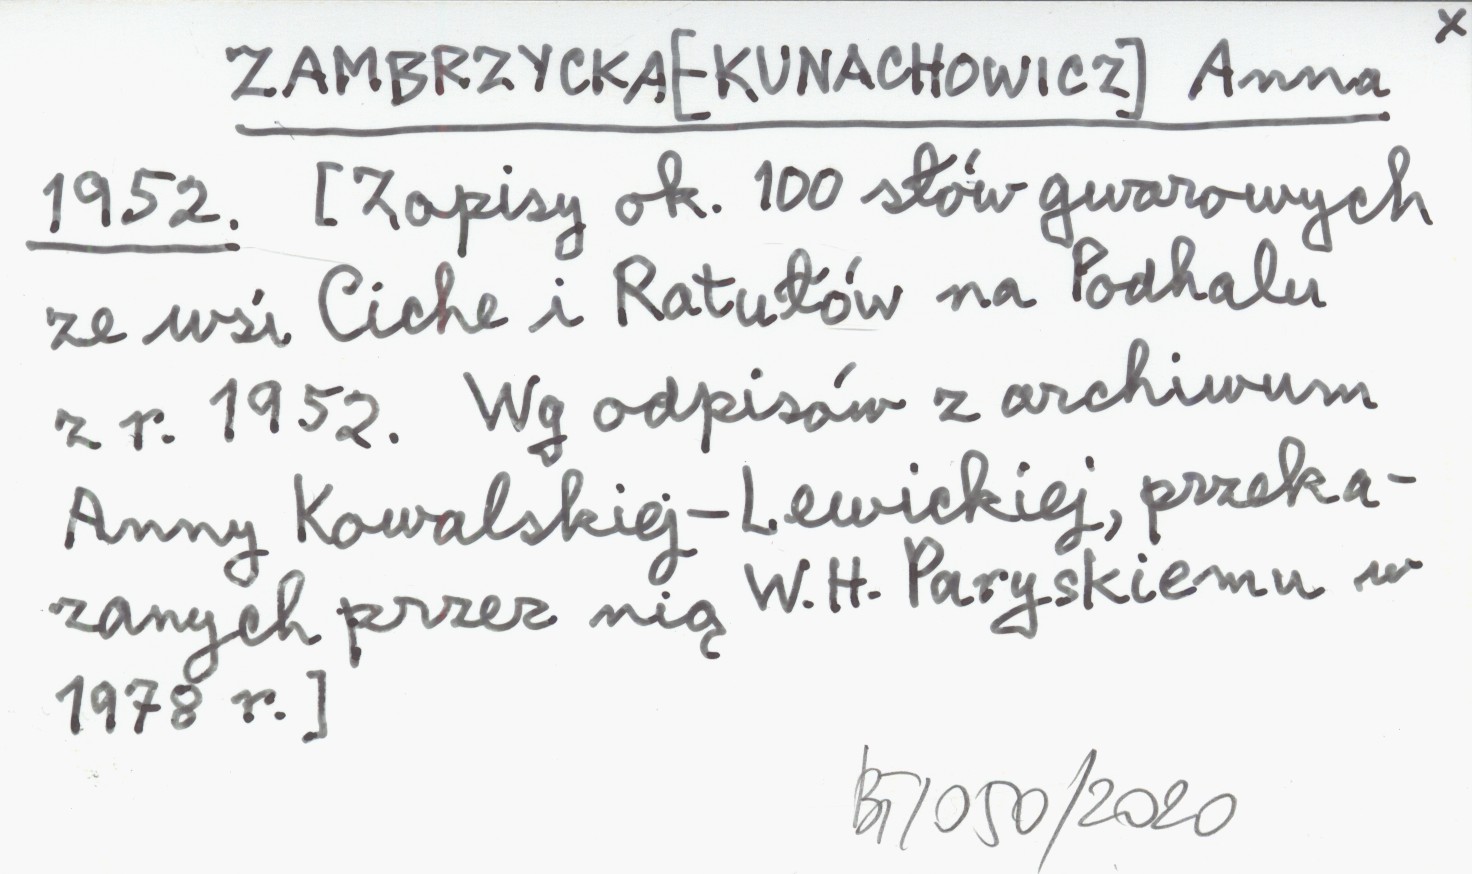 x
ZAMBRZYCKA[-KUNACHOWICZ] Anna
1952. [Zapisy ok. 100 słów gwarowych
ze wsi Ciche i Ratułów na Podhalu
z r. 1952. Wg odpisów z archiwum
Anny Kowalskiej-Lewickiej, przeka-
zanych przez nią W.H. Paryskiemu w
1978 r.]
BT/050/2020